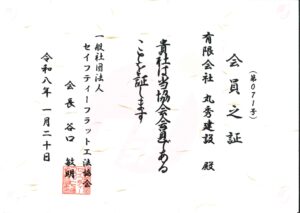 会員之証
（第０７１号）
有限会社 丸秀建設 殿
貴社は当協会会員である
ことを証します
一般社団法人
セイフティーフラット工法協会
会長 谷口 敏明
令和八年 一月二十日